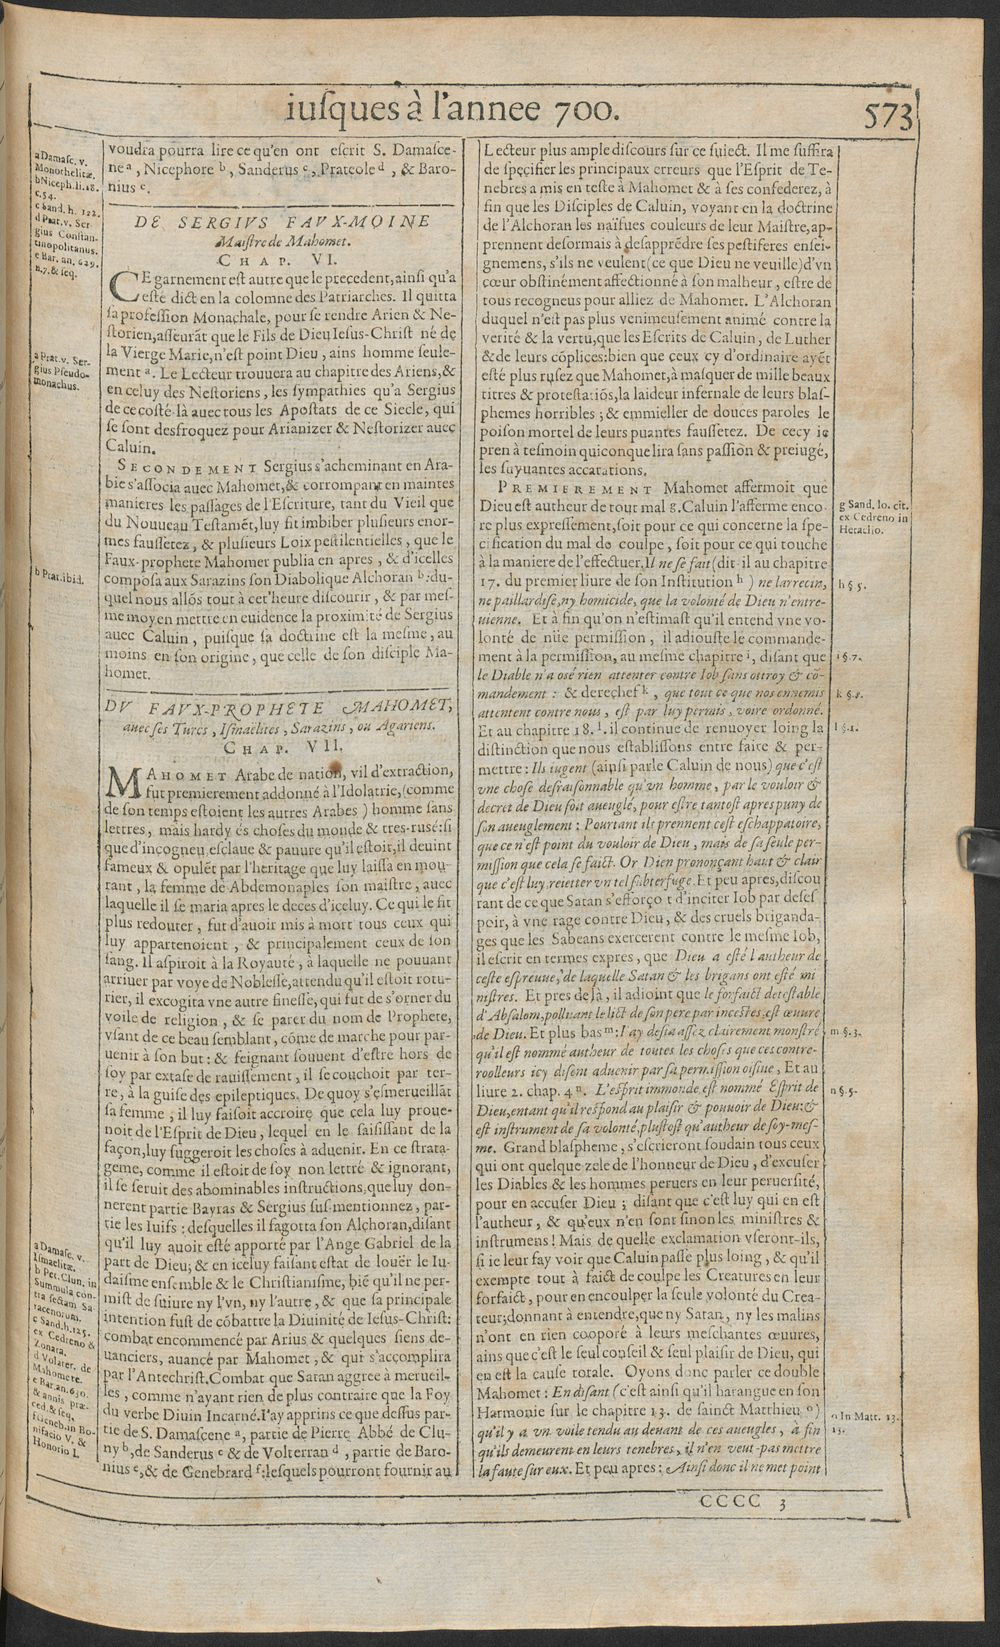 iusques à l'annee 700.
573
a Damasc. v.
Monothelitæ.
b Niceph. li. 18.
c. 54.
c Sand. h. 122.
d Prat. v. Ser
gius Constan-
tinopolitanus.
e Bar. an. 629.
n. 7. & seq.
voudra pourra lire ce qu'en ont escrit S. Damasce-
ne a, Nicephore b, Sanderus c, Prateole d, & Baro-
nius e.
DE SERGIVS FAVX-MOINE
Maistre de Mahomet.
CHAP. VI.
CE garnement est autre que le precedent, ainsi qu'a
esté dict en la colomne des Patriarches. Il quitta
sa profession Monachale, pour se rendre Arien & Ne-
storien, asseurãt que le Fils de Dieu Iesus-Christ né de
la Vierge Marie, n'est point Dieu, ains homme seule-
ment a. Le Lecteur trouuera au chapitre des Ariens, &
en celuy des Nestoriens, les sympathies qu'a Sergius
de ce costé là auec tous les Apostats de ce Siecle, qui
se sont desfroquez pour Arianizer & Nestorizer auec
Caluin.
a Prat. v. Ser-
gius Pseudo-
monachus.
SECONDEMENT Sergius s'acheminant en Ara-
bie s'associa auec Mahomet, & corrompant en maintes
manieres les passages de l'Escriture, tant du Vieil que
du Nouueau Testamẽt, luy fit imbiber plusieurs enor-
mes faussetez, & plusieurs Loix pestilentielles, que le
Faux-prophete Mahomet publia en apres, & d'icelles
composa aux Sarazins son Diabolique Alchoran b: du-
quel nous allõs tout à cet'heure discourir, & par mes-
me moyen mettre en euidence la proximité de Sergius
auec Caluin, puisque sa doctrine est la mesme, au
moins en son origine, que celle de son disciple Ma-
homet.
b Prat. ibid.
DV FAVX-PROPHETE MAHOMET,
auec ses Turcs, Ismaëlites, Sarazins, ou Agariens.
CHAP. VII.
MAHOMET Arabe de nation, vil d'extraction,
fut premierement addonné à l'Idolatrie, (comme
de son temps estoient les autres Arabes) homme sans
lettres, mais hardy és choses du monde & tres-rusé: si
que d'incogneu, esclaue & pauure qu'il estoit, il deuint
fameux & opulẽt par l'heritage que luy laissa en mou-
rant, la femme de Abdemonaples son maistre, auec
laquelle il se maria apres le deces d'iceluy. Ce qui le fit
plus redouter, fut d'auoir mis à mort tous ceux qui
luy appartenoient, & principalement ceux de son
sang. Il aspiroit à la Royauté, à laquelle ne pouuant
arriuer par voye de Noblesse, attendu qu'il estoit rotu-
rier, il excogita vne autre finesse, qui fut de s'orner du
voile de religion, & se parer du nom de Prophete,
vsant de ce beau semblant, cõme de marche pour par-
uenir à son but: & feignant souuent d'estre hors de
soy par extase de rauissement, il se couchoit par ter-
re, à la guise des epileptiques. De quoy s'esmerueillãt
sa femme; il luy faisoit accroire que cela luy proue-
noit de l'Esprit de Dieu, lequel en le saisissant de la
façon, luy suggeroit les choses à aduenir. En ce strata-
geme, comme il estoit de soy non lettré & ignorant,
il se seruit des abominables instructions, que luy don-
nerent partie Bayras & Sergius sus-mentionnez, par-
tie les Iuifs: desquelles il fagotta son Alchoran, disant
qu'il luy auoit esté apporté par l'Ange Gabriel de la
part de Dieu; & en iceluy faisant estat de louër le Iu-
daisme ensemble & le Christianisme, biẽ qu'il ne per-
mist de suiure ny l'vn, ny l'autre, & que sa principale
intention fust de cõbattre la Diuinité de Iesus-Christ:
combat encommencé par Arius & quelques siens de-
uanciers, auancé par Mahomet, & qui s'accomplira
par l'Antechrist, Combat que Satan aggree à merueil-
les, comme n'ayant rien de plus contraire que la Foy
du verbe Diuin Incarné. I'ay apprins ce que dessus par-
tie de S. Damascene a, partie de Pierre Abbé de Clu-
ny b, de Sanderus c & de Volterran d, partie de Baro-
nius e, & de Genebrard f: lesquels pourront fournir au
a Damasc. v.
Ismaelitæ.
b Pet. Clun. in
Summula con-
tra sectam Sa-
racenorum.
c Sand. h. 125.
ex Cedreno &
Zonara.
d Volater. de
Mahomete.
e Bar. an. 630.
& annis præ-
ced. & seq.
f Geneb. in Bo-
nifacio V. &
Honorio I.
Lecteur plus ample discours sur ce suiect. Il me suffira
de specifier les principaux erreurs que l'Esprit de Te-
nebres a mis en teste à Mahomet & à ses confederez, à
fin que les Disciples de Caluin, voyant en la doctrine
de l'Alchoran les naïfues couleurs de leur Maistre, ap-
prennent desormais à desapprẽdre ses pestiferes ensei-
gnemens, s'ils ne veulent (ce que Dieu ne veuille) d'vn
cœur obstinément affectionné à son malheur, estre de
tous recogneus pour alliez de Mahomet. L'Alchoran
duquel n'est pas plus venimeusement animé contre la
verité & la vertu, que les Escrits de Caluin, de Luther
& de leurs cõplices: bien que ceux cy d'ordinaire ayẽt
esté plus rusez que Mahomet, à masquer de mille beaux
titres & protestatiõs, la laideur infernale de leurs blas-
phemes horribles; & emmieller de douces paroles le
poison mortel de leurs puantes faussetez. De cecy ie
pren à tesmoin quiconque lira sans passiõn & preiugé,
les suyuantes accarations.
PREMIEREMENT Mahomet affermoit que
Dieu est autheur de tout mal g. Caluin l'afferme enco-
re plus expressement, soit pour ce qui concerne la spe-
cification du mal de coulpe, soit pour ce qui touche
à la maniere de l'effectuer, Il ne se fait (dit-il au chapitre
17. du premier liure de son Institution h) ne larrecin,
ne paillardise, ny homicide, que la volonté de Dieu n'entre-
uienne. Et à fin qu'on n'estimast qu'il entend vne vo-
lonté de nüe permission, il adiouste le commande-
ment à la permission, au mesme chapitre i, disant que
le Diable n'a osé rien attenter contre Iob sans ottroy & cõ-
mandement: & derechef k, que tout ce que nos ennemis
attentent contre nous, est par luy permis, voire ordonné.
Et au chapitre 18. l. il continue de renuoyer loing la
distinction que nous establissons entre faire & per-
mettre: Ils iugent (ainsi parle Caluin de nous) que c'est
vne chose desraisonnable qu'vn homme, par le vouloir &
decret de Dieu soit aueuglé, pour estre tantost apres puny de
son aueuglement: Pourtant ils prennent cest eschappatoire,
que ce n'est point du vouloir de Dieu, mais de sa seule per-
mission que cela se faict. Or Dieu prononçant haut & clair
que c'est luy, reietter vn tel subterfuge. Et peu apres, discou
rant de ce que Satan s'efforço t d'inciter Iob par deses
peir, à vne rage contre Dieu, & des cruels briganda-
ges que les Sabeans exercerent contre le mesme Iob,
il escrit en termes expres, que Dieu a esté l'autheur de
ceste espreuue, de laquelle Satan & les brigans ont esté mi
nistres. Et pres de là, il adioint que le forfaict detestable
d'Absalom, polluant le lict de son pere par incestes, est œuure
de Dieu. Et plus bas m: I'ay desia assez clairement monstré
qu'il est nommé autheur de toutes les choses que ces contre-
roolleurs icy disent aduenir par sa permission oisiue, Et au
liure 2. chap. 4 n. L'esprit immonde est nommé Esprit de
Dieu, entant qu'il respond au plaisir & pouuoir de Dieu: &
est instrument de sa volonté, plustost qu'autheur de soy-mes-
me. Grand blaspheme, s'escrieront soudain tous ceux
qui ont quelque zele de l'honneur de Dieu, d'excuser
les Diables & les hommes peruers en leur peruersité,
pour en accuser Dieu; disant que c'est luy qui en est
l'autheur, & qu'eux n'en sont sinon les ministres &
instrumens! Mais de quelle exclamation vseront-ils,
si ie leur fay voir que Caluin passe plus loing, & qu'il
exempte tout à faict de coulpe les Creatures en leur
forfaict, pour en encoulper la seule volonté du Crea-
teur; donnant à entendre, que ny Satan, ny les malins
n'ont en rien cooporé à leurs meschantes œuures,
ains que c'est le seul conseil & seul plaisir de Dieu, qui
en est la cause totale. Oyons donc parler ce double
Mahomet: En disant (c'est ainsi qu'il harangue en son
Harmonie sur le chapitre 13. de sainct Matthieu o)
qu'il y a vn voile tendu au deuant de ces aueugles, à fin
qu'ils demeurent en leurs tenebres, il n'en veut pas mettre
la faute sur eux. Et peu apres: Ainsi donc il ne met point
g Sand. lo. cit.
ex Cedreno in
Heraclio.
h § 5.
i §. 7.
k §. 8.
l §. 1.
m §. 3.
n §. 5.
o In Matt. 13.
13.
CCCC 3